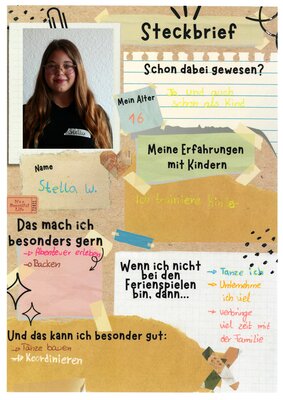 Steckbrief
Schon dabei gewesen?
Ja, und auch
schon als Kind
Mein Alter
16
Meine Erfahrungen
mit Kindern
Ich trainiere
Name
Stella W.
Das mach ich
besonders gern
→ Abenteuer erleben
→ Backen
Wenn ich nicht
bei den
Ferienspielen
bin, dann...
→ Tanze ich
→ Unternehme
ich viel
→ verbringe
viel zeit mit
der Familie
Und das kann ich besonder gut:
→ Tänze bauen
→ Koordinieren